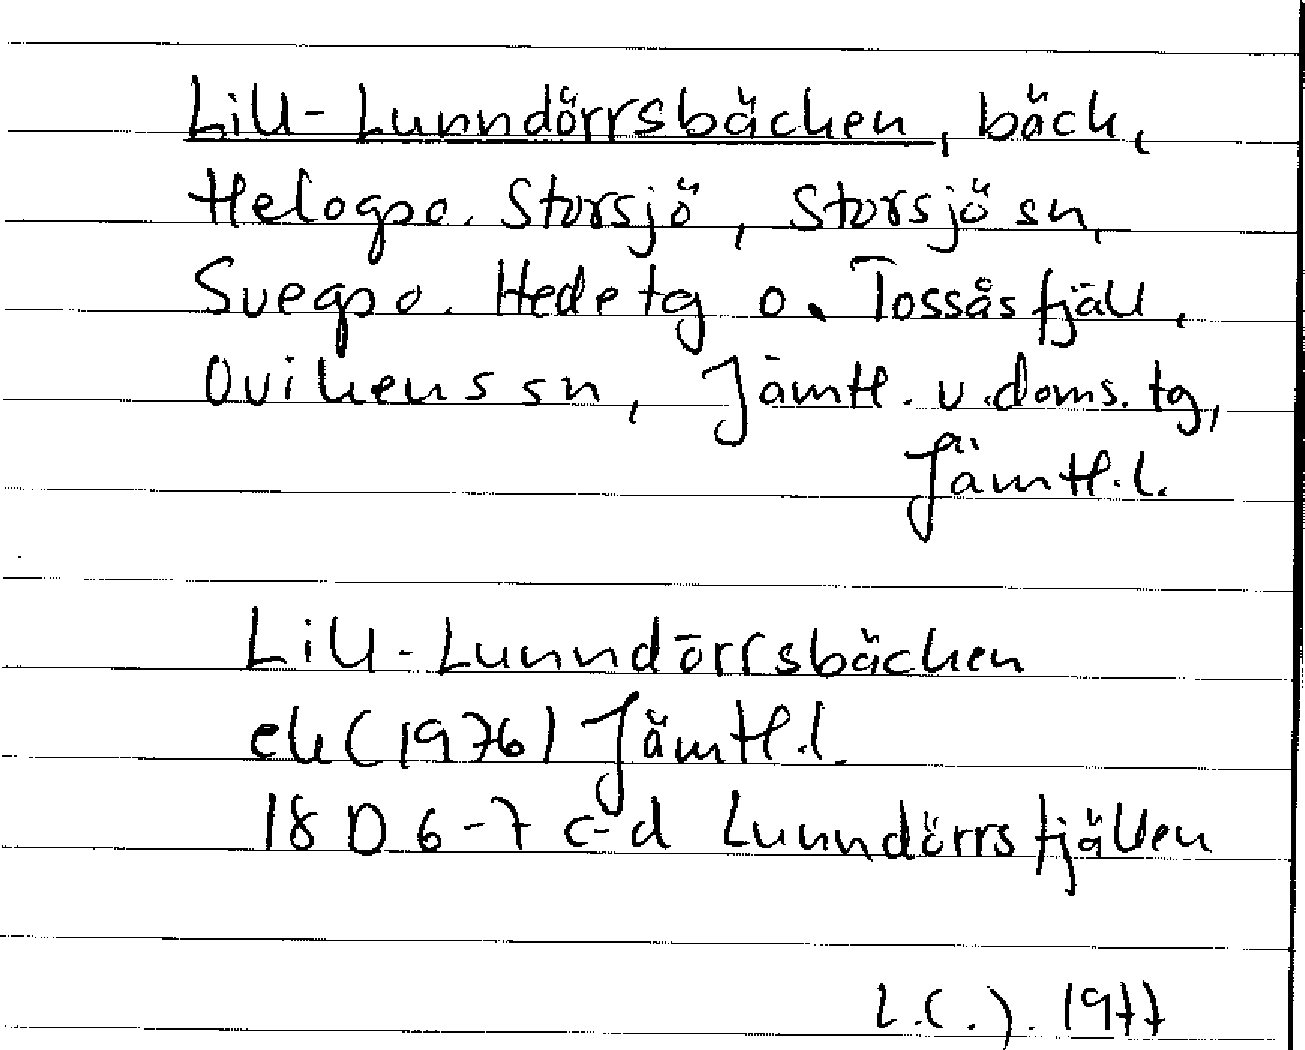 Lill-Lunndörrsbäcken, bäck,
Helagso. Storsjö, Storsjö sn,
Svegso. Hede tg o. Tossåsfjäll,
Ovikens sn, Jämtl. v. doms. tg,
Jämtl. l.
Lill-Lunndörrsbäcken
ek (1976) Jämtl. l.
18 D 6-7 c-d Lunndörrsfjällen
1977